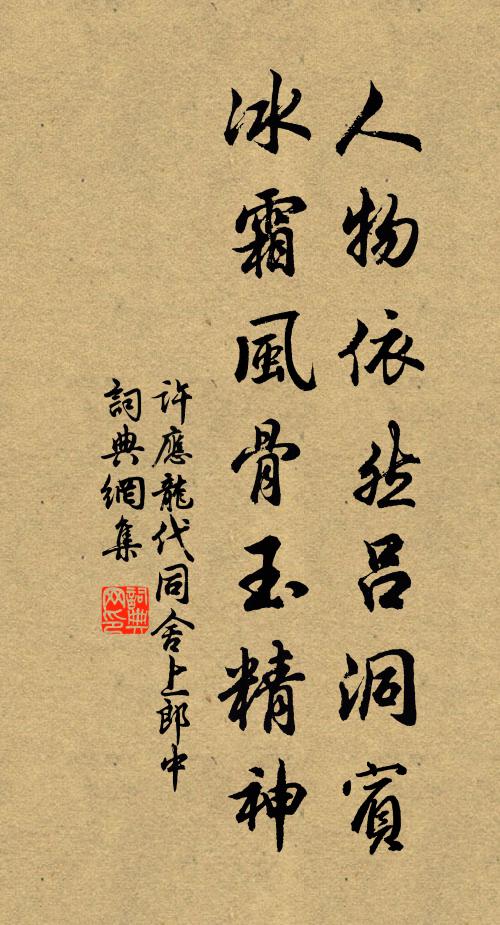 人物依然呂洞賓
冰霜風骨玉精神
許應龍代同舍上郎中
詞典網集
詞典网印